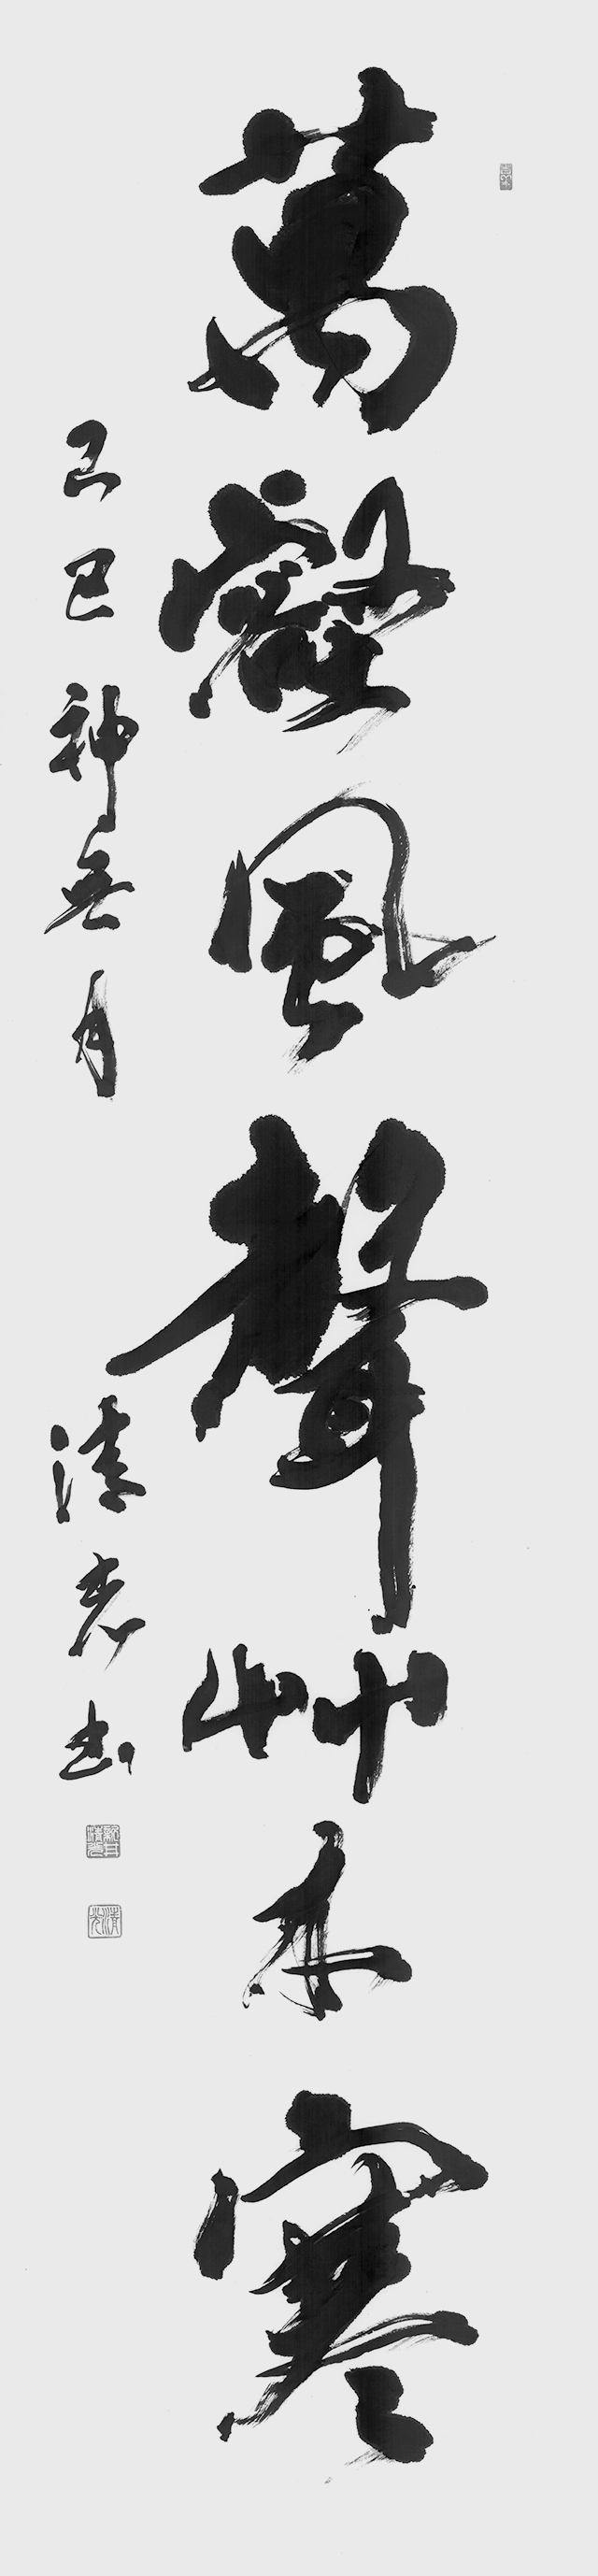 萬壑風聲艸木寒
己巳神無月
清光書